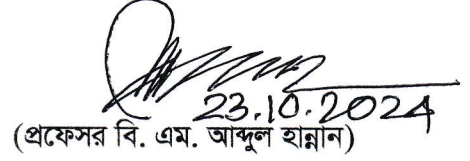 23.10.2024
(প্রফেসর বি. এম. আব্দুল হান্নান)